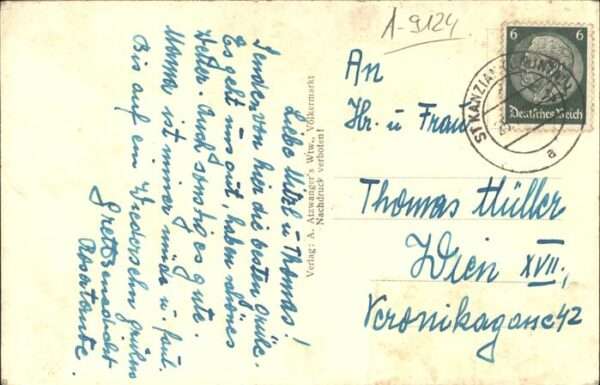 Liebe Mitzl u Thomas!
Senden von hier die besten Grüße.
Es geht uns gut, haben schönes
Wetter. Auch sonst is es gute.
Mama ist immer müde u. faul.
Bis auf ein Wiedersehn grüßen
Rosatante.
Verlag: A. Atzwanger's Wtw., Völkermarkt
Nachdruck verboten!
A-9124
6 6
Deutsches Reich
ST. KANZIAN
a
An
Hr. u Frau
Thomas Müller
Wien XVII.,
Veronikagasse 42